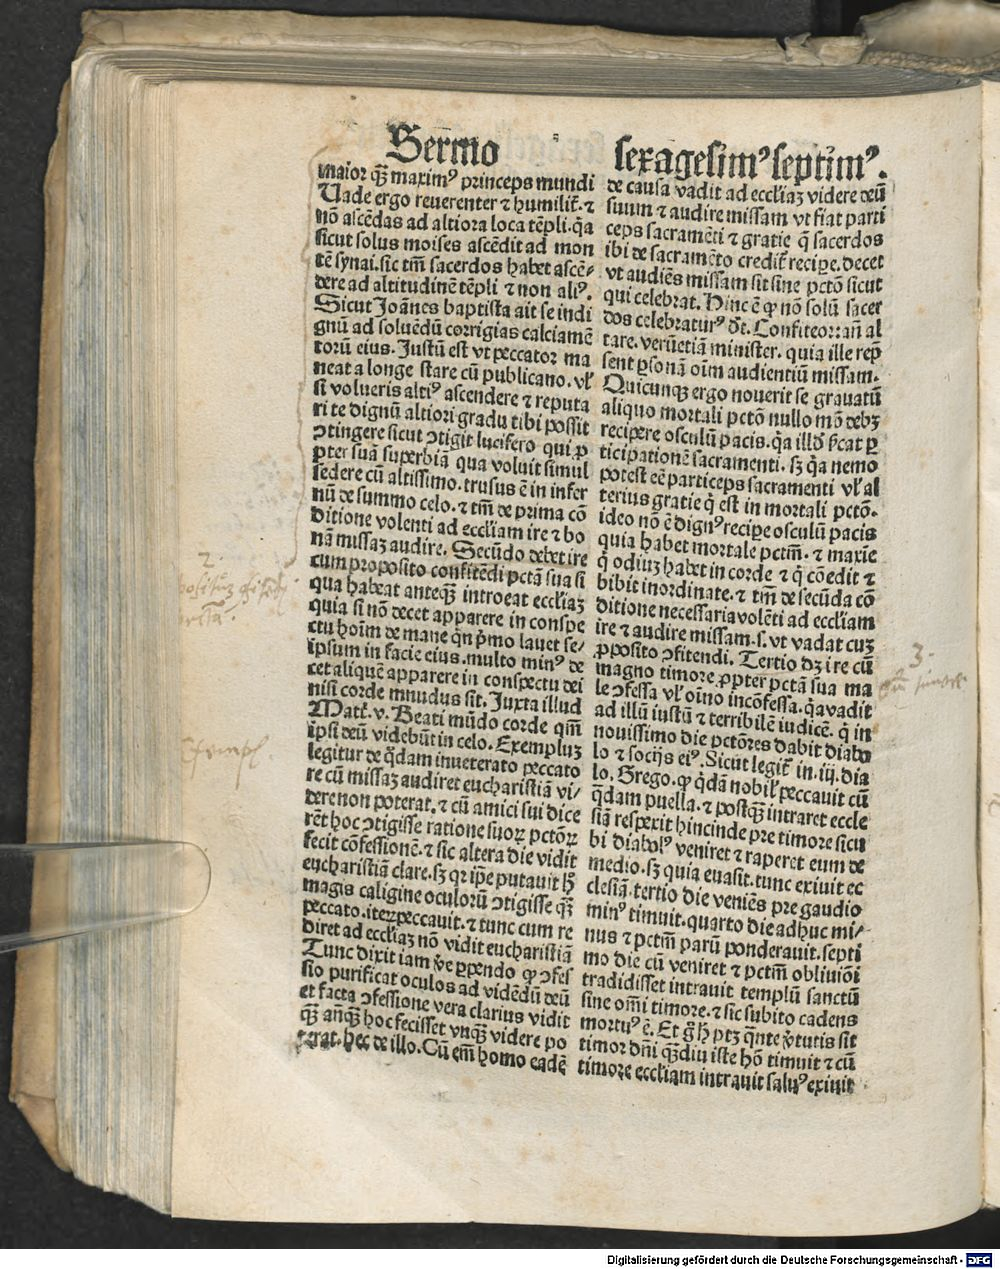 Sermo
maior qȝ maximꝰ princeps mundi
Uade ergo reuerenter ⁊ humilit̄. ⁊
nō ascēdas ad altiora loca tēpli. q̄a
sicut solus moises ascēdit ad mon
tē synai. sic tm̄ sacerdos habet ascē⸗
dere ad altitudinē tēpli ⁊ non aliꝰ.
Sicut Joānes baptista ait se indi
gnū ad soluēdū corrigias calciamē
torū eius. Justū est vt peccator ma
neat a longe stare cū publicano. vl̓
si volueris altiꝰ ascendere ⁊ reputa
ri te dignū altiori gradu tibi possit
ↄtingere sicut ↄtigit lucifero qui ꝓ
pter suā superbiā qua voluit simul
sedere cū altissimo. trusus ē in infer
nū de summo celo. ⁊ tm̄ de prima cō
ditione volenti ad eccl̓iam ire ⁊ bo
nā missaȝ audire. Secūdo debet ire
cum proposito confitēdi pctā sua si
qua habeat anteqȝ introeat eccl̓iaȝ
quia si nō decet apparere in conspe
ctu hoīm de mane qn̄ p̄mo lauet se⸗
ipsum in facie eius. multo minꝰ de
cet aliquē apparere in conspectu dei
nisi corde mnudus sit. Juxta illud
Matt̄. v. Beati mūdo corde qm̄
ipsi deū videbūt in celo. Exempluȝ
legitur de q̄dam inueterato peccato
re cū missaȝ audiret eucharistiā vi⸗
dere non poterat. ⁊ cū amici sui dice
rēt hoc ↄtigisse ratione suoꝝ pctōꝝ
fecit cōfessionē. ⁊ sic altera die vidit
eucharistiā clare. sȝ qꝛ ip̄e putauit h̄
magis caligine oculorū ↄtigisse qȝ
peccato. iteꝝ peccauit. ⁊ tunc cum re
diret ad eccl̓iaȝ nō vidit eucharistiā
Tunc dixit iam v̄e ꝑpendo ꝙ ↄfes
sio purificat oculos ad vidēdū deū
et facta ↄfessione vera clarius vidit
qȝ anqȝ hoc fecisset vnqȝ videre po
terat. hec de illo. Cū em̄ homo eadē
sexagesimꝰ septimꝰ.
de causa vadit ad eccl̓iaȝ videre deū
suum ⁊ audire missam vt fiat parti
ceps sacramēti ⁊ gratie q̄ sacerdos
ibi de sacramēto credit̄ recipe. decet
vt audiēs missam sit sine pctō sicut
qui celebrat. Hinc ē ꝙ nō solū sacer
dos celebraturꝰ d̄t. Confiteor: añ al
tare. verūetiā minister. quia ille rep̄
sent ꝑsonā oīm audientiū missam.
Quicunqȝ ergo nouerit se grauatū
aliquo mortali pctō nullo mō debȝ
recipere osculū pacis. q̄a illd̄ p̄cat ꝑ
ticipationē sacramenti. sȝ q̄a nemo
potest eē particeps sacramenti vl̓ al
terius gratie q̄ est in mortali pctō.
ideo nō ē dignꝰ recipe osculū pacis
quia habet mortale pctm̄. ⁊ maxīe
q̄ odiuȝ habet in corde ⁊ q̄ cōedit ⁊
bibit inordinate. ⁊ tm̄ de secūda cō
ditione necessaria volēti ad eccl̓iam
ire ⁊ audire missam. s. vt vadat cuȝ
ꝓposito ↄfitendi. Tertio dȝ ire cū
magno timore ꝓpter pctā sua ma
le ↄfessa vl̓ oīno incōfessa. q̄a vadit
ad illū iustū ⁊ terribilē iudicē. q̄ in
nouissimo die pctōres dabit diabo
lo ⁊ socijs eiꝰ. Sicut legit̄ in. iij. dia
lo. Grego. ꝙ q̄dā nobil̓ peccauit cū
q̄dam puella. ⁊ postqȝ intraret eccle
siā respexit hincinde pre timore sicu
bi diabolꝰ veniret ⁊ raperet eum de
medio. sȝ quia euasit. tunc exiuit ec
clesiā. tertio die veniēs pre gaudio
minꝰ timuit. quarto die adhuc mi⸗
nus ⁊ pctm̄ parū ponderauit. septi
mo die cū veniret ⁊ pctm̄ obliuiōi
tradidisset intrauit templū sanctū
sine omī timore. ⁊ sic subito cadens
mortuꝰ ē. Et g̊ h̄ ptȝ q̄nte v̓tutis sit
timor dn̄i qȝdiu iste hō timuit ⁊ cū
timore eccl̓iam intrauit saluꝰ exiuit
2.
3.
Exempl.
Digitalisierung gefördert durch die Deutsche Forschungsgemeinschaft - DFG